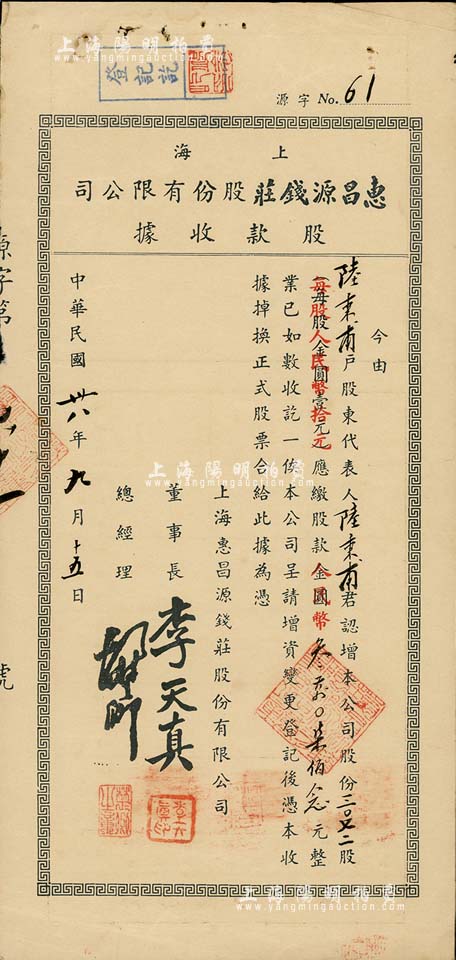 上海陽明拍賣
www.yangmingauction.com
登記訖
源字 No. 61
上海
惠昌源錢莊股份有限公司
股款收據
今由
陸東甫戶股東代表人陸東甫君認增本公司股份三〇七二股
每股金圓壹元
每股人民幣拾元
應繳股款金圓人民幣叁萬〇柒佰念元整
業已如數收訖一俟本公司呈請增資變更登記後憑本收
據掉換正式股票合給此據為憑
上海惠昌源錢莊股份有限公司
董事長 李天真
李天真印
總經理
中華民國卅八年九月十五日
源字第
號
上海陽明拍賣
www.yangmingauction.com
上海陽明拍賣
www.yangmingauction.com